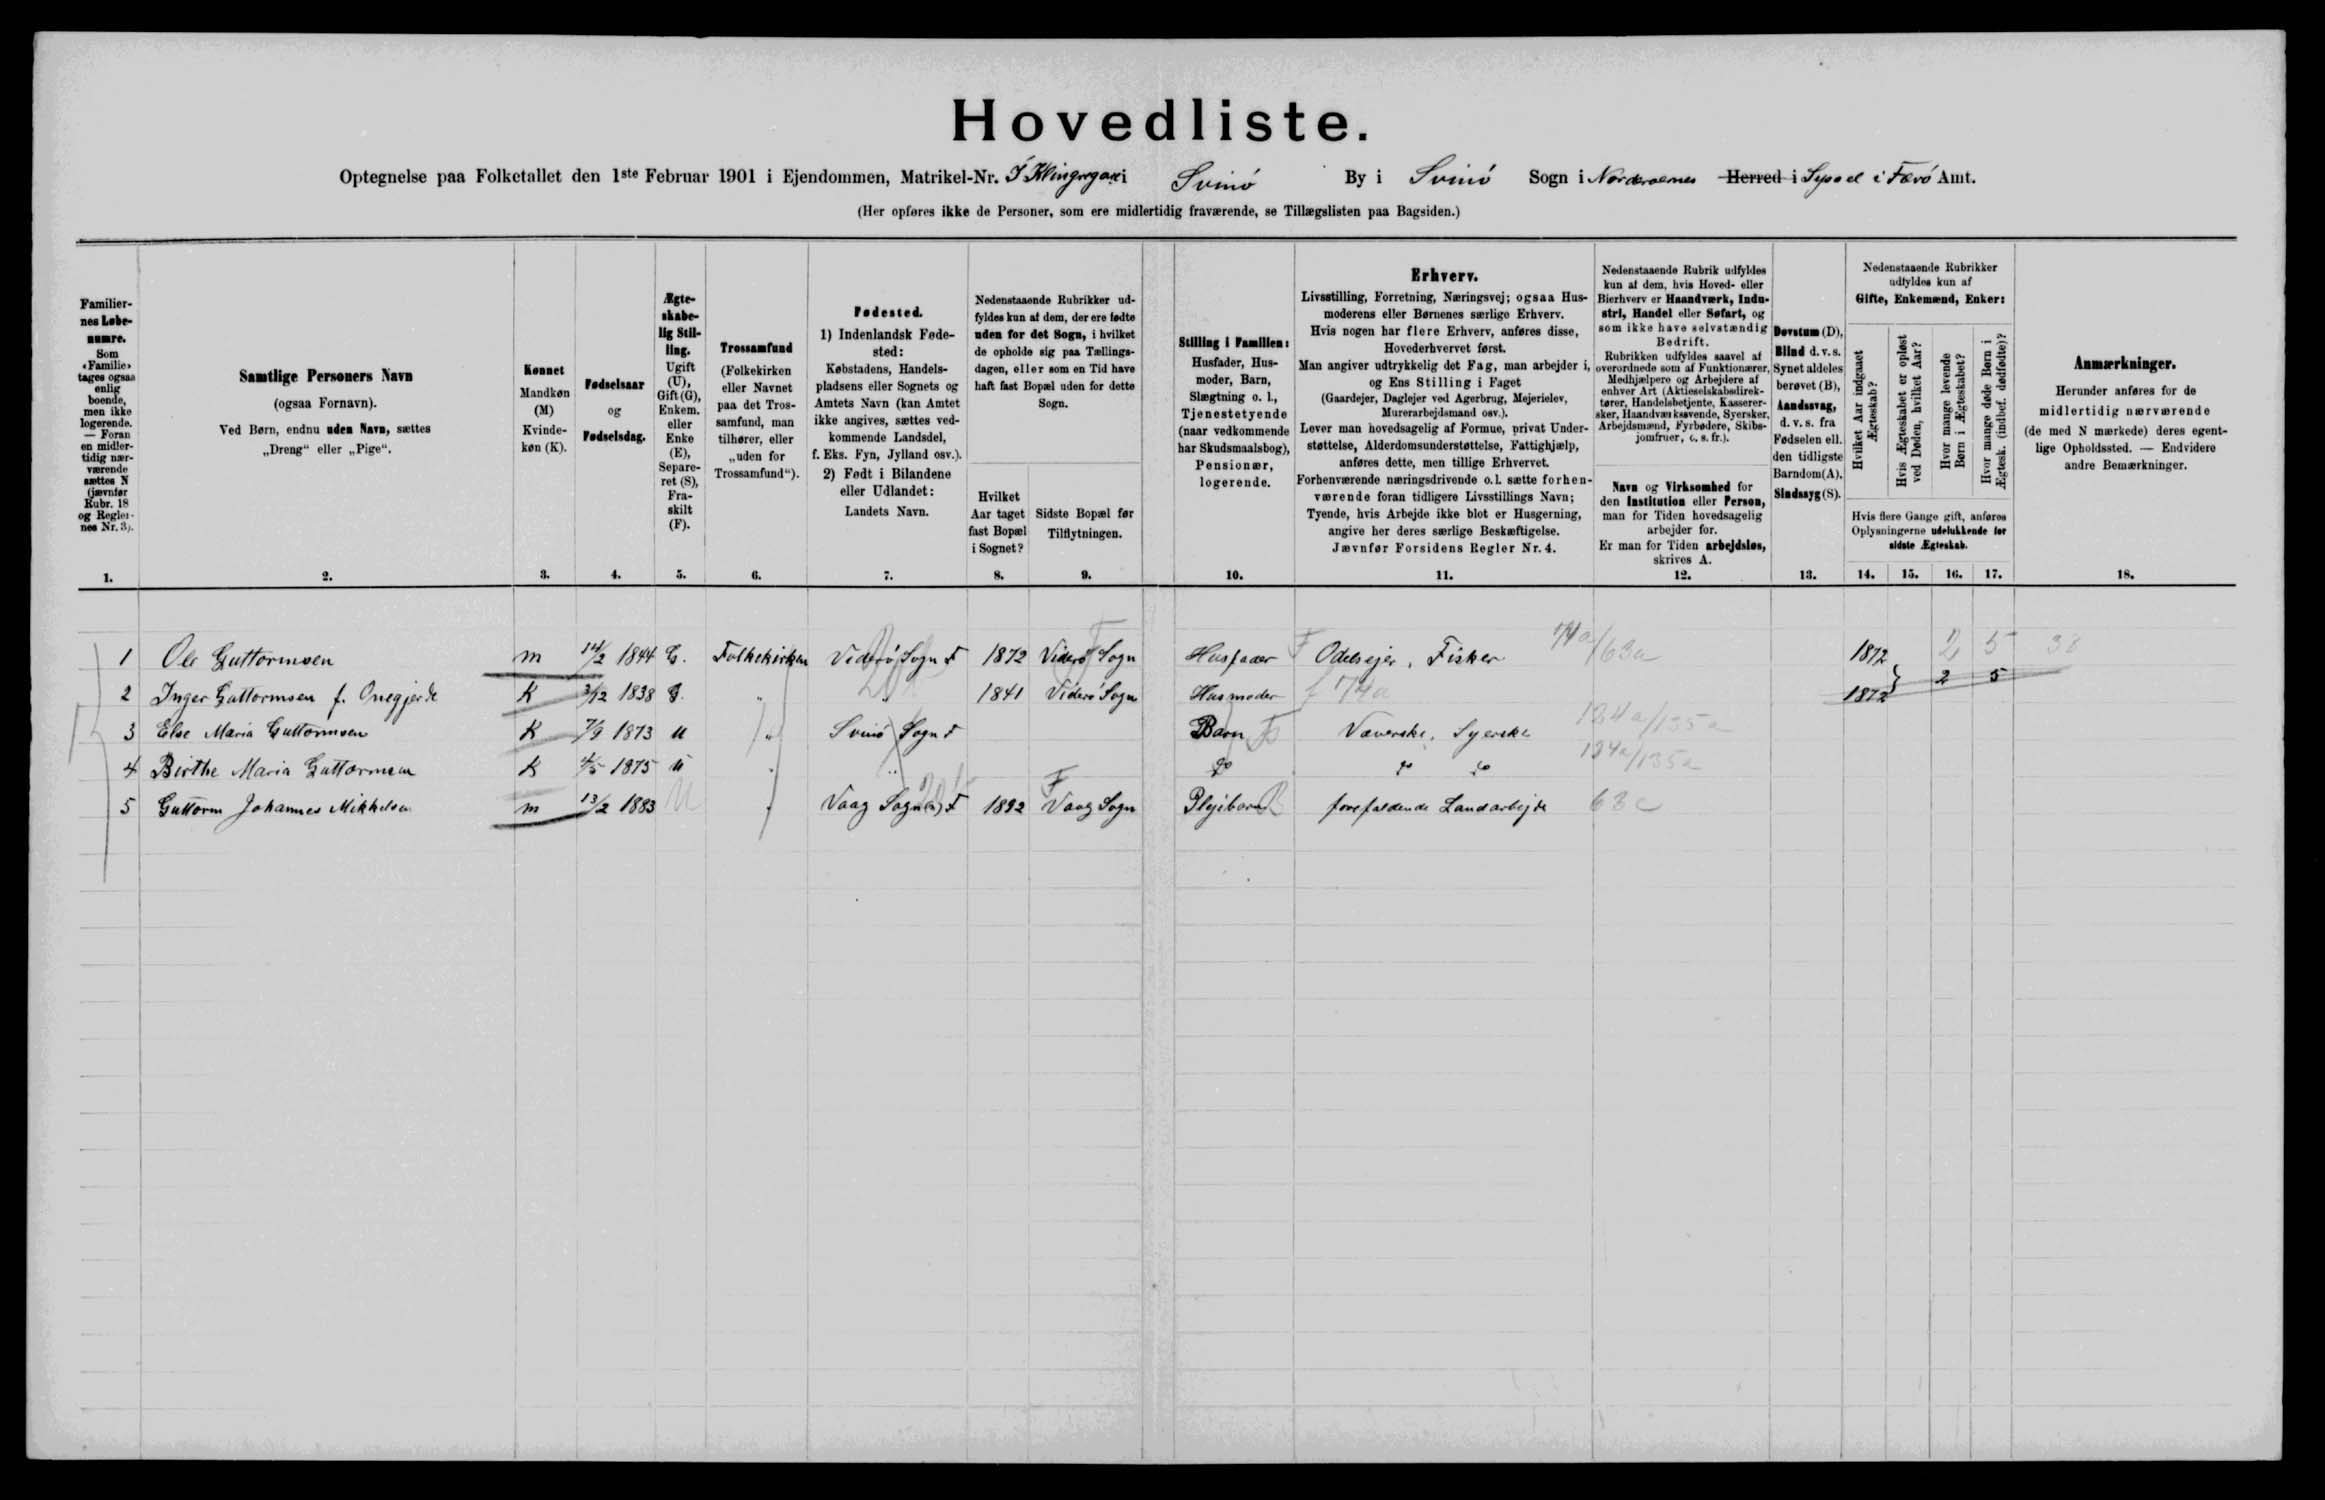 Hovedliste.
Optegnelse paa Folketallet den 1ste Februar 1901 i Ejendommen, Matrikel-Nr. Í Klingrgari i Svinö By i Svinö Sogn i Norderoernes Herred i Syssel i Færö Amt.
(Her opføres ikke de Personer, som ere midlertidig fraværende, se Tillægslisten paa Bagsiden.)
Familiernes Løbenumre. Som «Familie» tages ogsaa enlig boende, men ikke logerende. — Foran en midlertidig nærværende sættes N (jævnfør Rubr. 18 og Reglernes Nr. 3).
Samtlige Personers Navn (ogsaa Fornavn). Ved Børn, endnu uden Navn, sættes „Dreng“ eller „Pige“.
Kønnet Mandkøn (M) Kvindekøn (K).
Fødselsaar og Fødselsdag.
Ægteskabelig Stilling. Ugift (U), Gift (G), Enkem. eller Enke (E), Separeret (S), Fraskilt (F).
Trossamfund (Folkekirken eller Navnet paa det Trossamfund, man tilhører, eller „uden for Trossamfund“).
Fødested. 1) Indenlandsk Fødested: Købstadens, Handelspladsens eller Sognets og Amtets Navn (kan Amtet ikke angives, sættes vedkommende Landsdel, f. Eks. Fyn, Jylland osv.). 2) Født i Bilandene eller Udlandet: Landets Navn.
Nedenstaaende Rubrikker udfyldes kun af dem, der ere fødte uden for det Sogn, i hvilket de opholde sig paa Tællingsdagen, eller som en Tid have haft fast Bopæl uden for dette Sogn.
Hvilket Aar taget fast Bopæl i Sognet?
Sidste Bopæl før Tilflytningen.
Stilling i Familien: Husfader, Husmoder, Barn, Slægtning o. l., Tjenestetyende (naar vedkommende har Skudsmaalsbog), Pensionær, logerende.
Erhverv.
Livsstilling, Forretning, Næringsvej; ogsaa Husmoderens eller Børnenes særlige Erhverv.
Hvis nogen har flere Erhverv, anføres disse, Hovederhvervet først.
Man angiver udtrykkelig det Fag, man arbejder i, og Ens Stilling i Faget
(Gaardejer, Daglejer ved Agerbrug, Mejerielev, Murerarbejdsmand osv.).
Lever man hovedsagelig af Formue, privat Understøttelse, Alderdomsunderstøttelse, Fattighjælp, anføres dette, men tillige Erhvervet.
Forhenværende næringsdrivende o.l. sætte forhenværende foran tidligere Livsstillings Navn;
Tyende, hvis Arbejde ikke blot er Husgerning, angive her deres særlige Beskæftigelse.
Jævnfør Forsidens Regler Nr. 4.
Nedenstaaende Rubrik udfyldes kun af dem, hvis Hoved- eller Bierhverv er Haandværk, Industri, Handel eller Søfart, og som ikke have selvstændig Bedrift.
Rubrikken udfyldes saavel af overordnede som af Funktionærer, Medhjælpere og Arbejdere af enhver Art (Aktieselskabsdirektører, Handelsbetjente, Kasserersker, Haandværkssvende, Syersker, Arbejdsmænd, Fyrbødere, Skibsjomfruer, o. s. fr.).
Navn og Virksomhed for den Institution eller Person, man for Tiden hovedsagelig arbejder for.
Er man for Tiden arbejdsløs, skrives A.
Døvstum (D), Blind d. v. s. Synet aldeles berøvet (B), Aandssvag, d. v. s. fra Fødselen ell. den tidligste Barndom (A), Sindssyg (S).
Nedenstaaende Rubrikker udfyldes kun af Gifte, Enkemænd, Enker:
Hvilket Aar indgaaet Ægteskab?
Hvis Ægteskabet er opløst ved Døden, hvilket Aar?
Hvor mange levende Børn i Ægteskabet?
Hvor mange døde Børn i Ægtesk. (indbef. dødfødte)?
Hvis flere Gange gift, anføres Oplysningerne udelukkende for sidste Ægteskab.
Anmærkninger.
Herunder anføres for de midlertidig nærværende (de med N mærkede) deres egentlige Opholdssted. — Endvidere andre Bemærkninger.
1. 2. 3. 4. 5. 6. 7. 8. 9. 10. 11. 12. 13. 14. 15. 16. 17. 18.
1 Ole Guttormsen m 14/2 1844 G. Folkekirken Viderö Sogn F 1872 Viderö Sogn F Husfader F Odelsejer, Fisker 74a/63a 1872 2 5 38
2 Inger Guttormsen f. Onegjerde K 3/12 1838 G. " " 1841 Viderö Sogn Husmoder f 74a 1872 2 5
3 Else Maria Guttormsen K 7/9 1873 U " Svinö Sogn F Barn Væverske, Syerske 134a/135a
4 Birthe Maria Guttormsen K 4/5 1875 U " " do do do 134a/135a
5 Guttorm Johannes Mikkelsen m 13/2 1883 U " Vaag Sogn F 1892 F Vaag Sogn Plejebarn forefaldende Landarbejde 63c